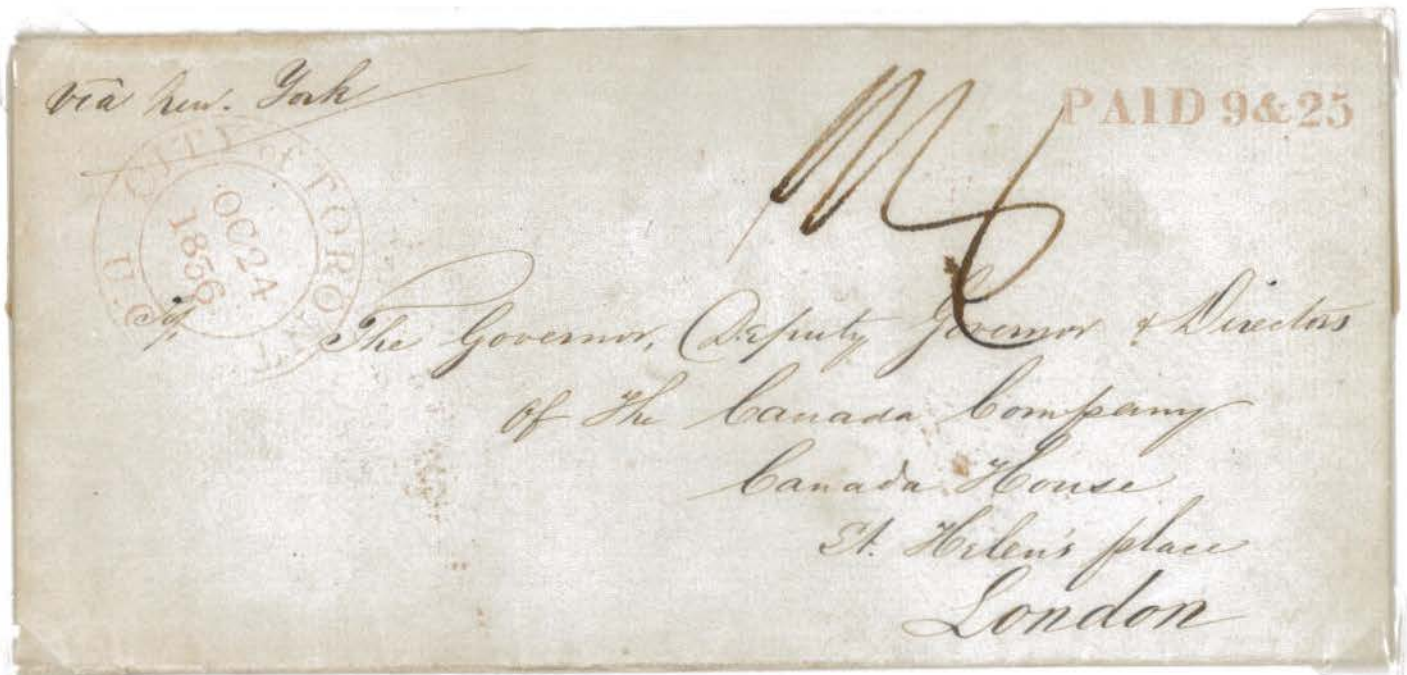 via New. York
PAID 9&25
CITY of TORONTO
U.C.
OC 24
1836
To,
The Governor, Deputy Governor & Directors
of The Canada Company
Canada House
St. Helen's place
London